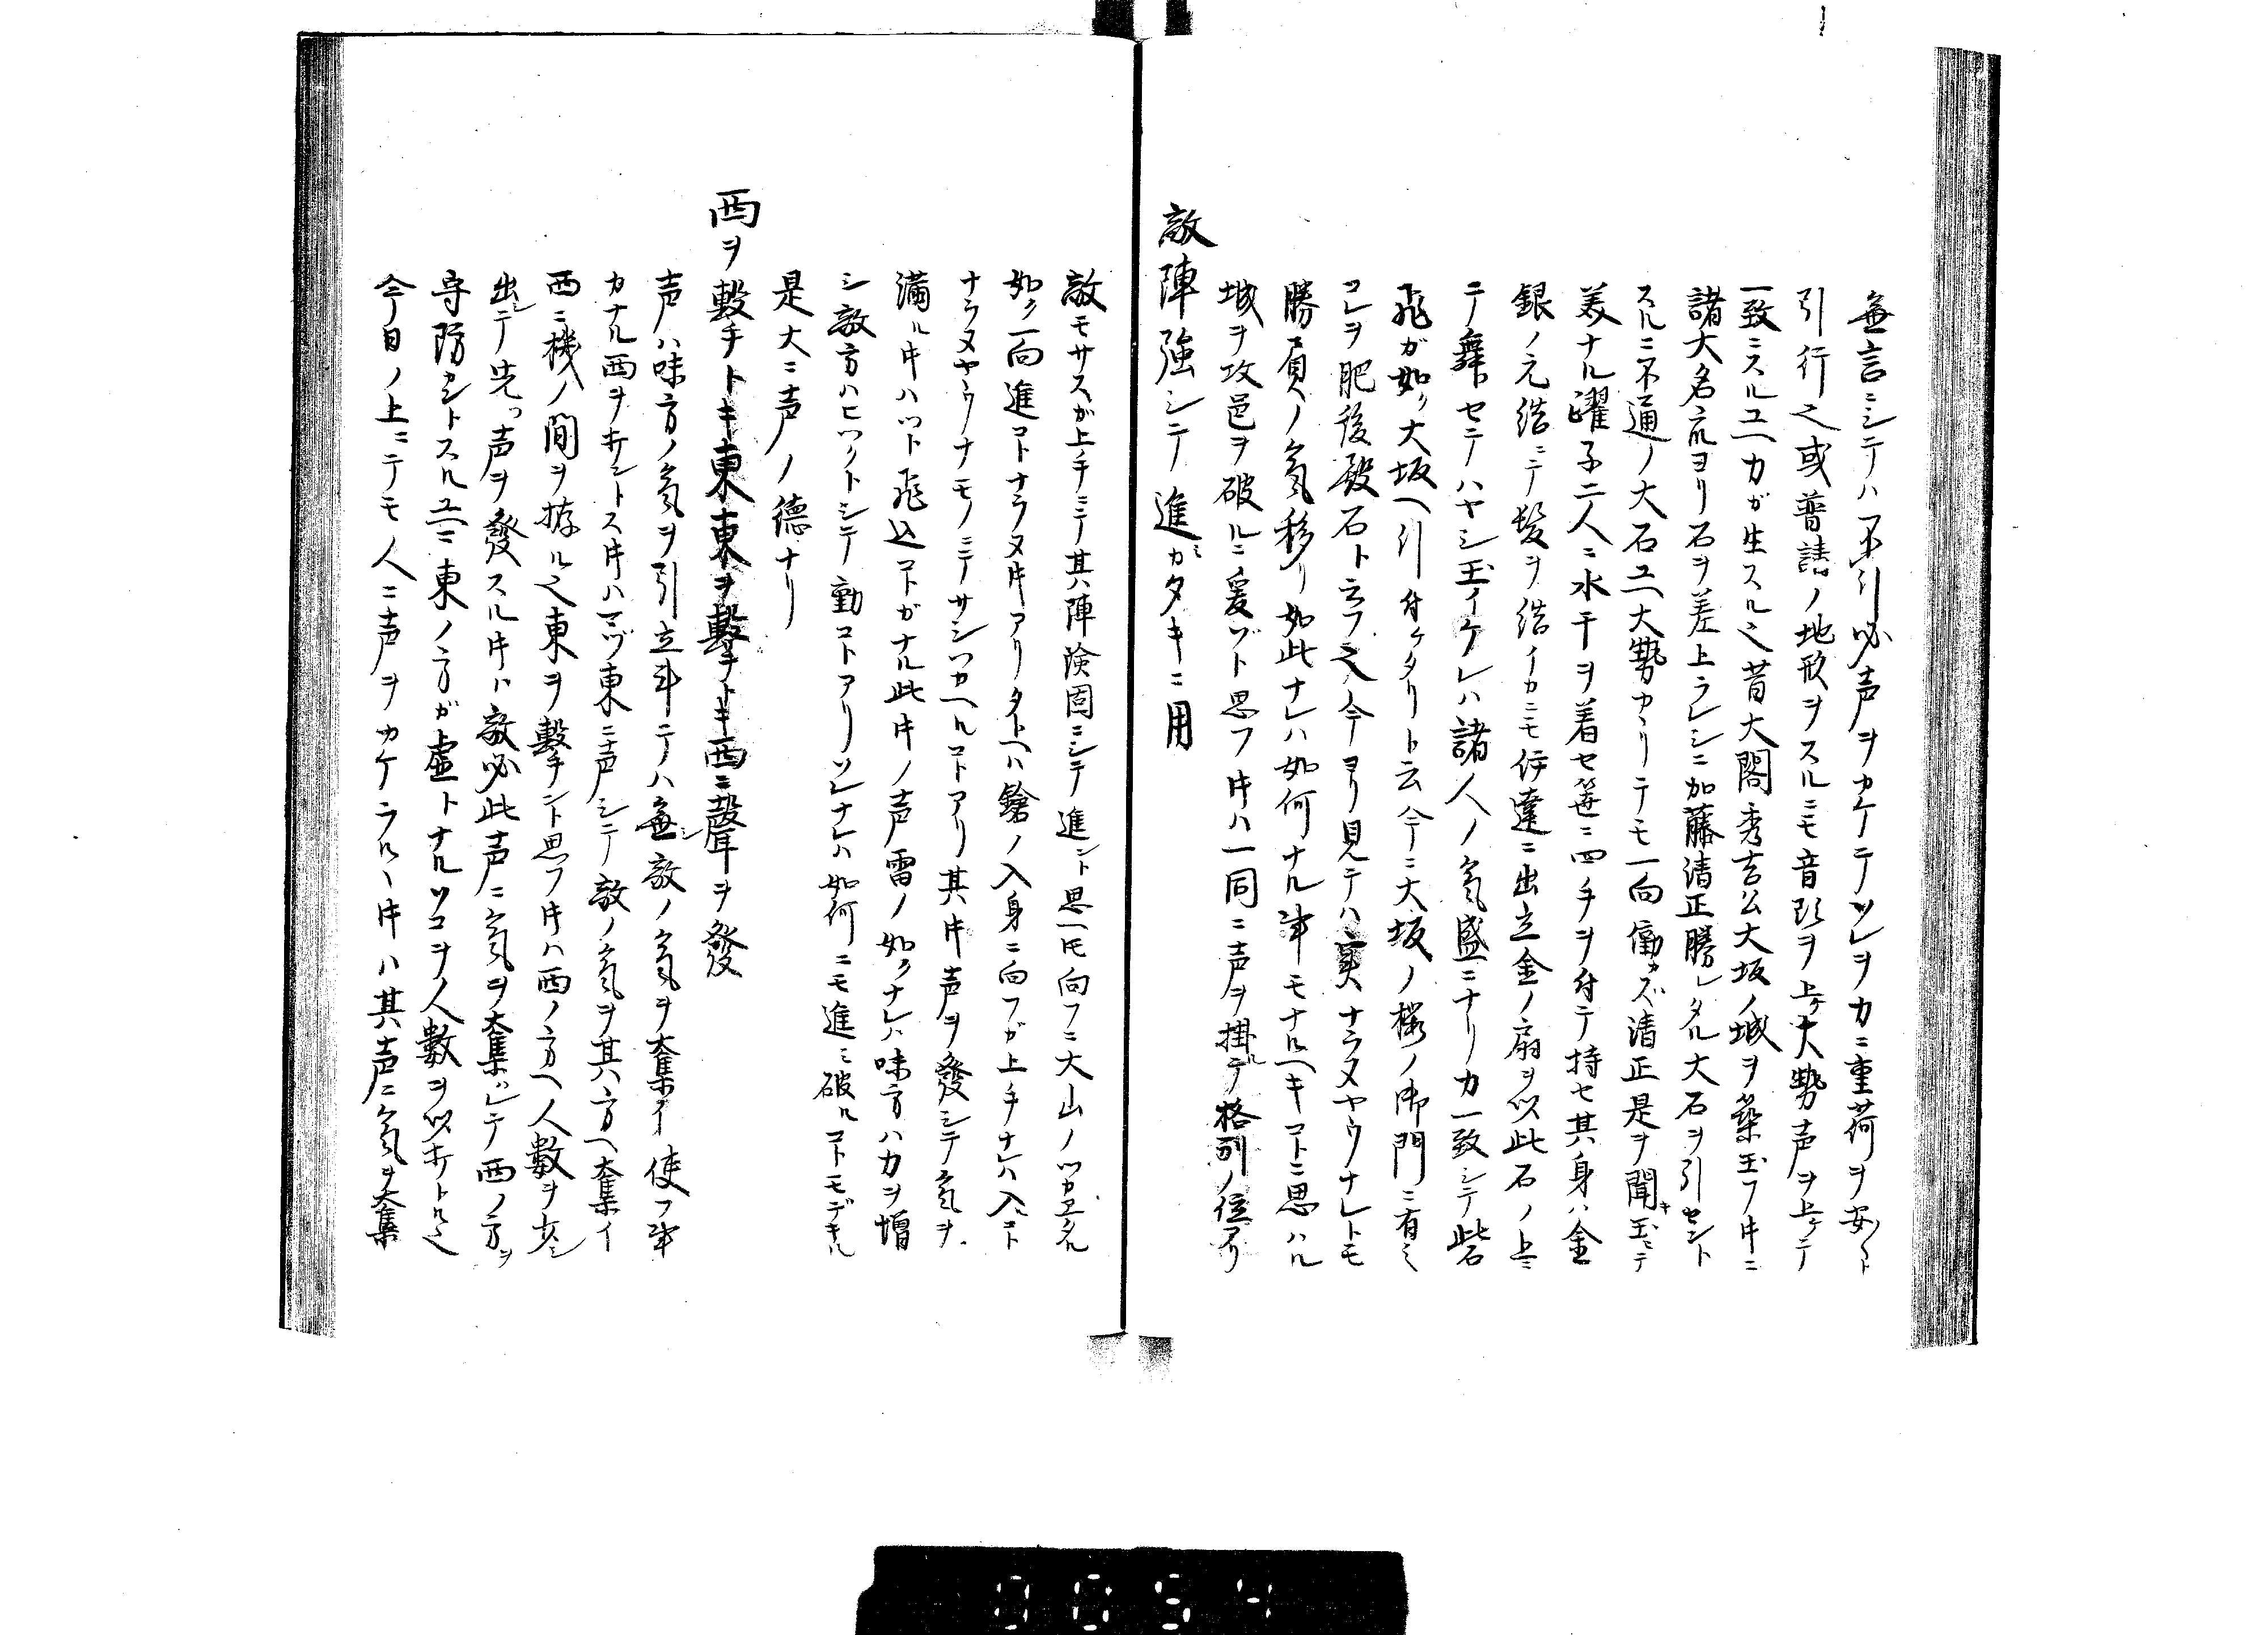 無言ニシテハ不引必声ヲカケテソレヲ力ニ重荷ヲ安〻ト
引行之或普請ノ地形ヲスルニモ音頭ヲ上ケ大勢声ヲ上ケテ
一致ニスルユヘ力ガ生スル之昔大閤秀吉公大坂ノ城ヲ築玉フ时ニ
諸大名衆ヨリ石ヲ差上ラレシニ加藤清正勝レタル大石ヲ引セント
スルニ不通ノ大石ユヘ大勢カヽリテモ一向働カズ清正是ヲ聞キ玉ニテ
美ナル躍子二人ニ水干ヲ着セ笹ニ四手ヲ付テ持セ其身ハ金
銀ノ元結ニテ髪ヲ結イカニモ伊達ニ出立金ノ扇ヲ以此石ノ上ニ
テ舞セテハヤシ玉イケレハ諸人ノ氣盛ニナリカ一致シテ此石
飛ガ如ク大坂ヘ引付ケタリト云今ニ大坂ノ桜ノ御門ニ有之
コレヲ肥後殿石ト云フ之今ヨリ見テハ実ナラヌヤウナレトモ
勝負ノ氣移リ如此ナレハ如何ナル事モナルヘキコトニ思ハル
城ヲ攻邑ヲ破ルニ爰ゾト思フ时ハ一同ニ声ヲ掛ルテ格別ノ位アリ
敵陣強シテ進ミカタキニ用
敵モサスガ上手ニテ其陣険固ニシテ進ント思ヘ𪜈向フニ大山ノツカエタル
如ク一向進コトナラヌ时アリタトヘハ鎗ノ入身ニ向フガ上手ナレハ入コト
ナラヌヤウナモノニテサシツカヘルコトアリ其时声ヲ發シテ氣ヲ
満ル时ハハット飛込コトガナル此时ノ声雷ノ如クナレハ味方ハ力ヲ増
シ敵方ハヒツクトシテ動コトアリソレナレハ如何ニモ進ミ破ルコトモデキル
是大ニ声ノ徳ナリ
西ヲ撃チトキ東東ヲ撃チトキ西ニ聲ヲ發
声ハ味方ノ氣ヲ引立斗ニテハ無シ敵ノ氣ヲ奪イ使フ事
カナル西ヲ打ントス时ハマヅ東ニ声シテ敵ノ氣ヲ其方ヘ奪イ
西ニ機ノ間ヲ拵ル之東ヲ撃チント思フ时ハ西ノ方ヘ人数ヲ少シ
出シテ先ツ声ヲ發スル时ハ敵必此声ニ氣ヲ奪ハレテ西ノ方ヲ
守防カントスルユヘニ東ノ方ガ虚トナルソコヲ人数ヲ以打トル之
今日ノ上ニテモ人ニ声ヲカケラルヽ时ハ其声ニ氣ヲ奪